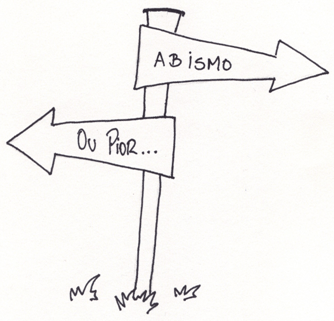 ABISMO
OU PIOR...